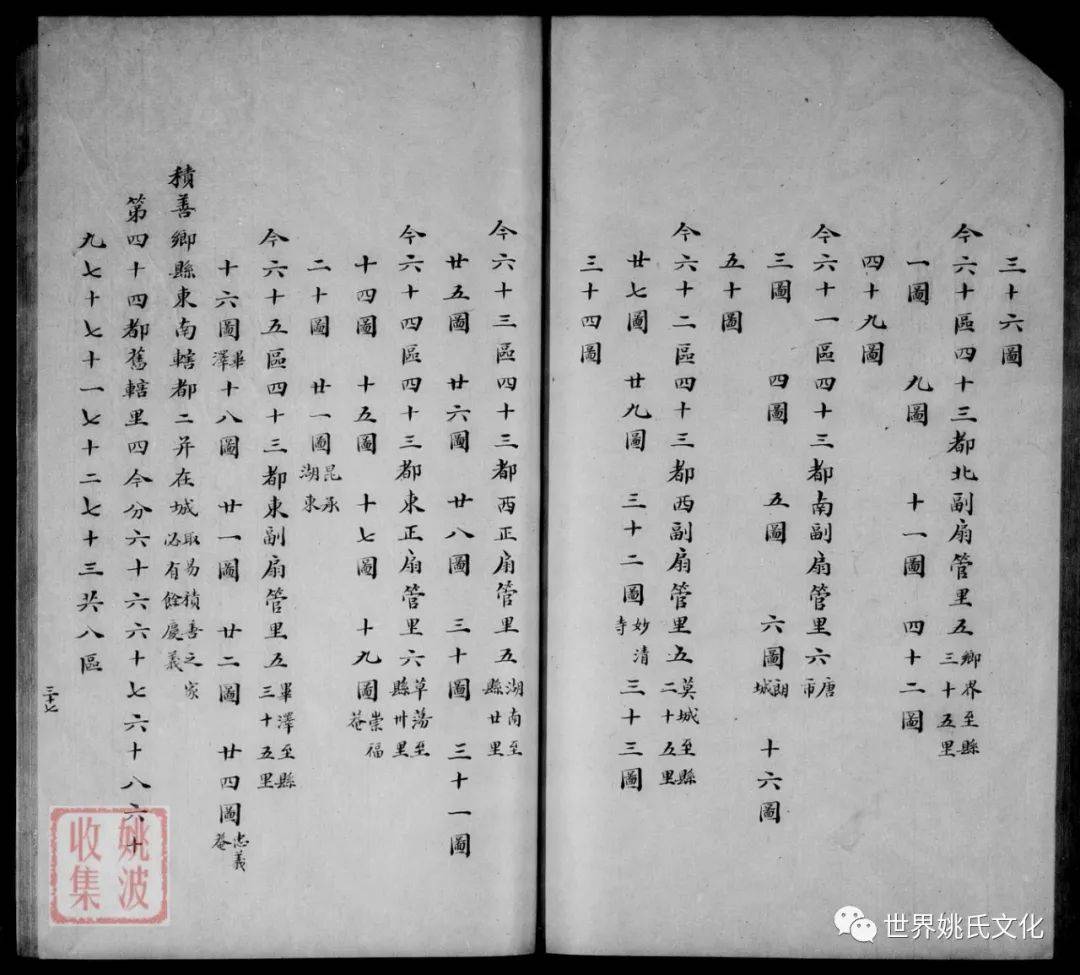 三十六圖
今六十區四十三都北副扇管里五鄉界至縣三十五里
一圖 九圖 十一圖 四十二圖
四十九圖
今六十一區四十三都南副扇管里六唐市
三圖 四圖 五圖 六圖朗城 十六圖
五十圖
今六十二區四十三都西副扇管里五莫城至縣二十五里
廿七圖 廿九圖 三十二圖妙清寺 三十三圖
三十四圖
今六十三區四十三都西正扇管里五湖南至縣廿里
廿五圖 廿六圖 廿八圖 三十圖 三十一圖
今六十四區四十三都東正扇管里六草蕩至縣卅里
十四圖 十五圖 十七圖 十九圖崇福菴
二十圖 廿一圖昆承湖東
今六十五區四十三都東副扇管里五畢澤至縣三十五里
十六圖畢澤 十八圖 廿一圖 廿二圖 廿四圖忠義菴
積善鄉縣東南轄都二并在城取易積善之家必有餘慶義
第四十四都舊轄里四今分六十六六十七六十八六十
九七十七十一七十二七十三共八區
三十七
姚波收集
世界姚氏文化